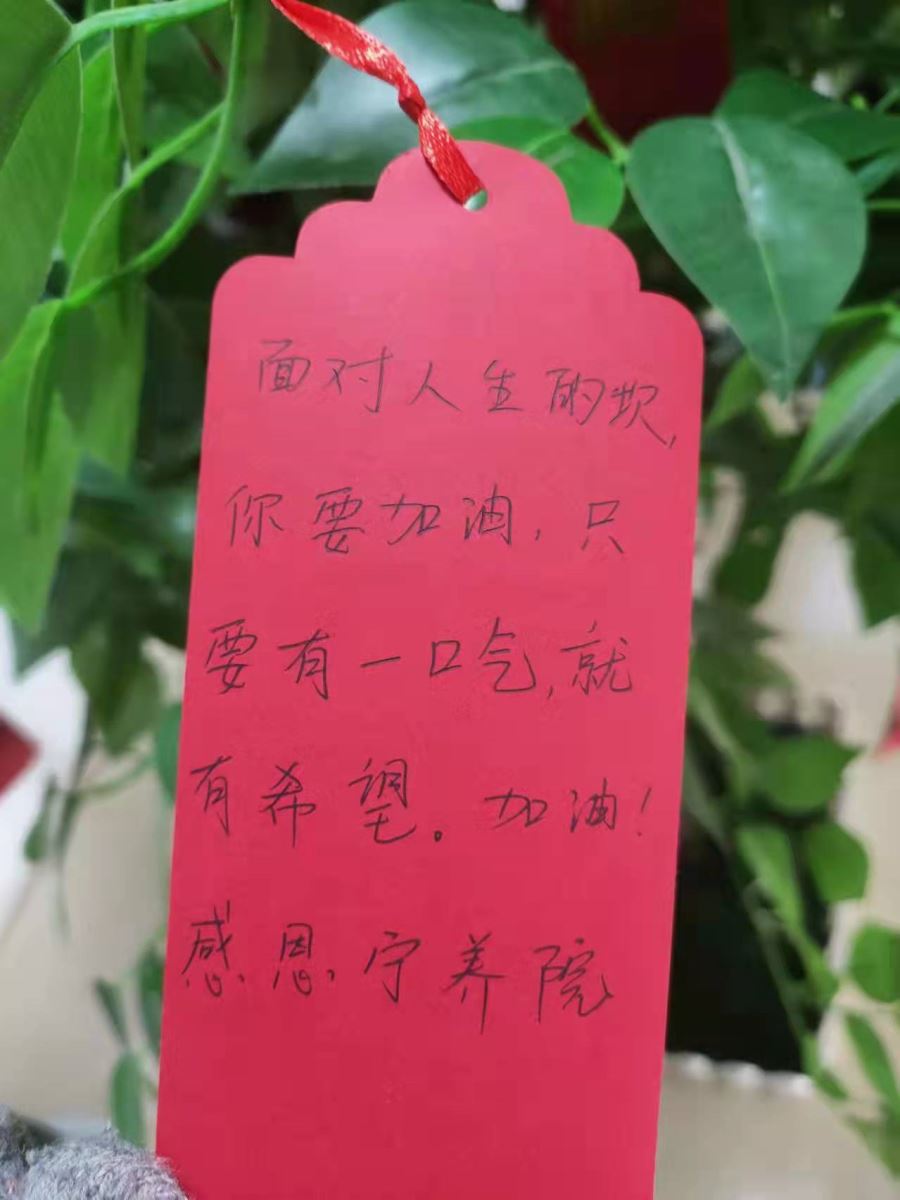 面对人生的坎,
你要加油,只
要有一口气,就
有希望。加油!
感恩宁养院